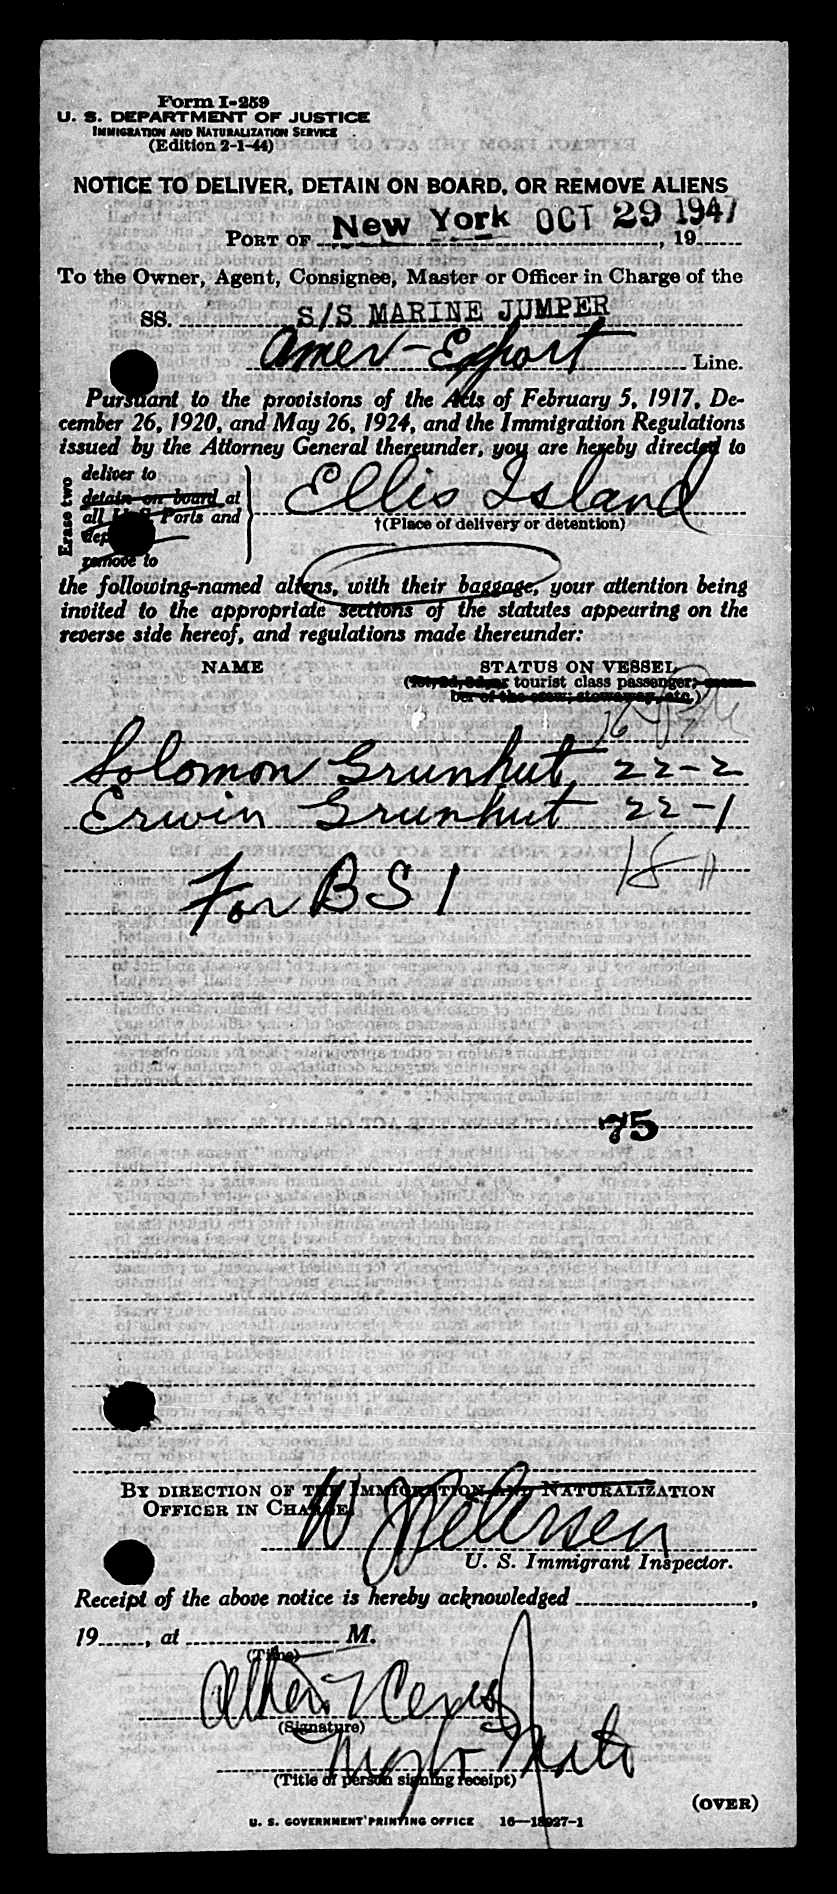 Form I-259
U. S. DEPARTMENT OF JUSTICE
IMMIGRATION AND NATURALIZATION SERVICE
(Edition 2-1-44)
NOTICE TO DELIVER, DETAIN ON BOARD, OR REMOVE ALIENS
PORT OF New York OCT 29 1947, 19
To the Owner, Agent, Consignee, Master or Officer in Charge of the
SS. S/S MARINE JUMPER
Amer-Export Line.
Pursuant to the provisions of the Acts of February 5, 1917, De-
cember 26, 1920, and May 26, 1924, and the Immigration Regulations
issued by the Attorney General thereunder, you are hereby directed to
Erase two
deliver to
detain on board at
all U.S. Ports and
remove to
Ellis Island
†(Place of delivery or detention)
the following-named aliens, with their baggage, your attention being
invited to the appropriate sections of the statutes appearing on the
reverse side hereof, and regulations made thereunder:
NAME STATUS ON VESSEL
(1st, 2d, 3d, or tourist class passenger; mem-
ber of the crew; stowaway, etc.)
Solomon Grunhut 22-2
Erwin Grunhut 22-1
For BSI
75
BY DIRECTION OF THE IMMIGRATION AND NATURALIZATION
OFFICER IN CHARGE
W J Petersen
U. S. Immigrant Inspector.
Receipt of the above notice is hereby acknowledged ,
19 , at M.
(Time)
(Signature)
(Title of person signing receipt)
(OVER)
U. S. GOVERNMENT PRINTING OFFICE 16—18927-1